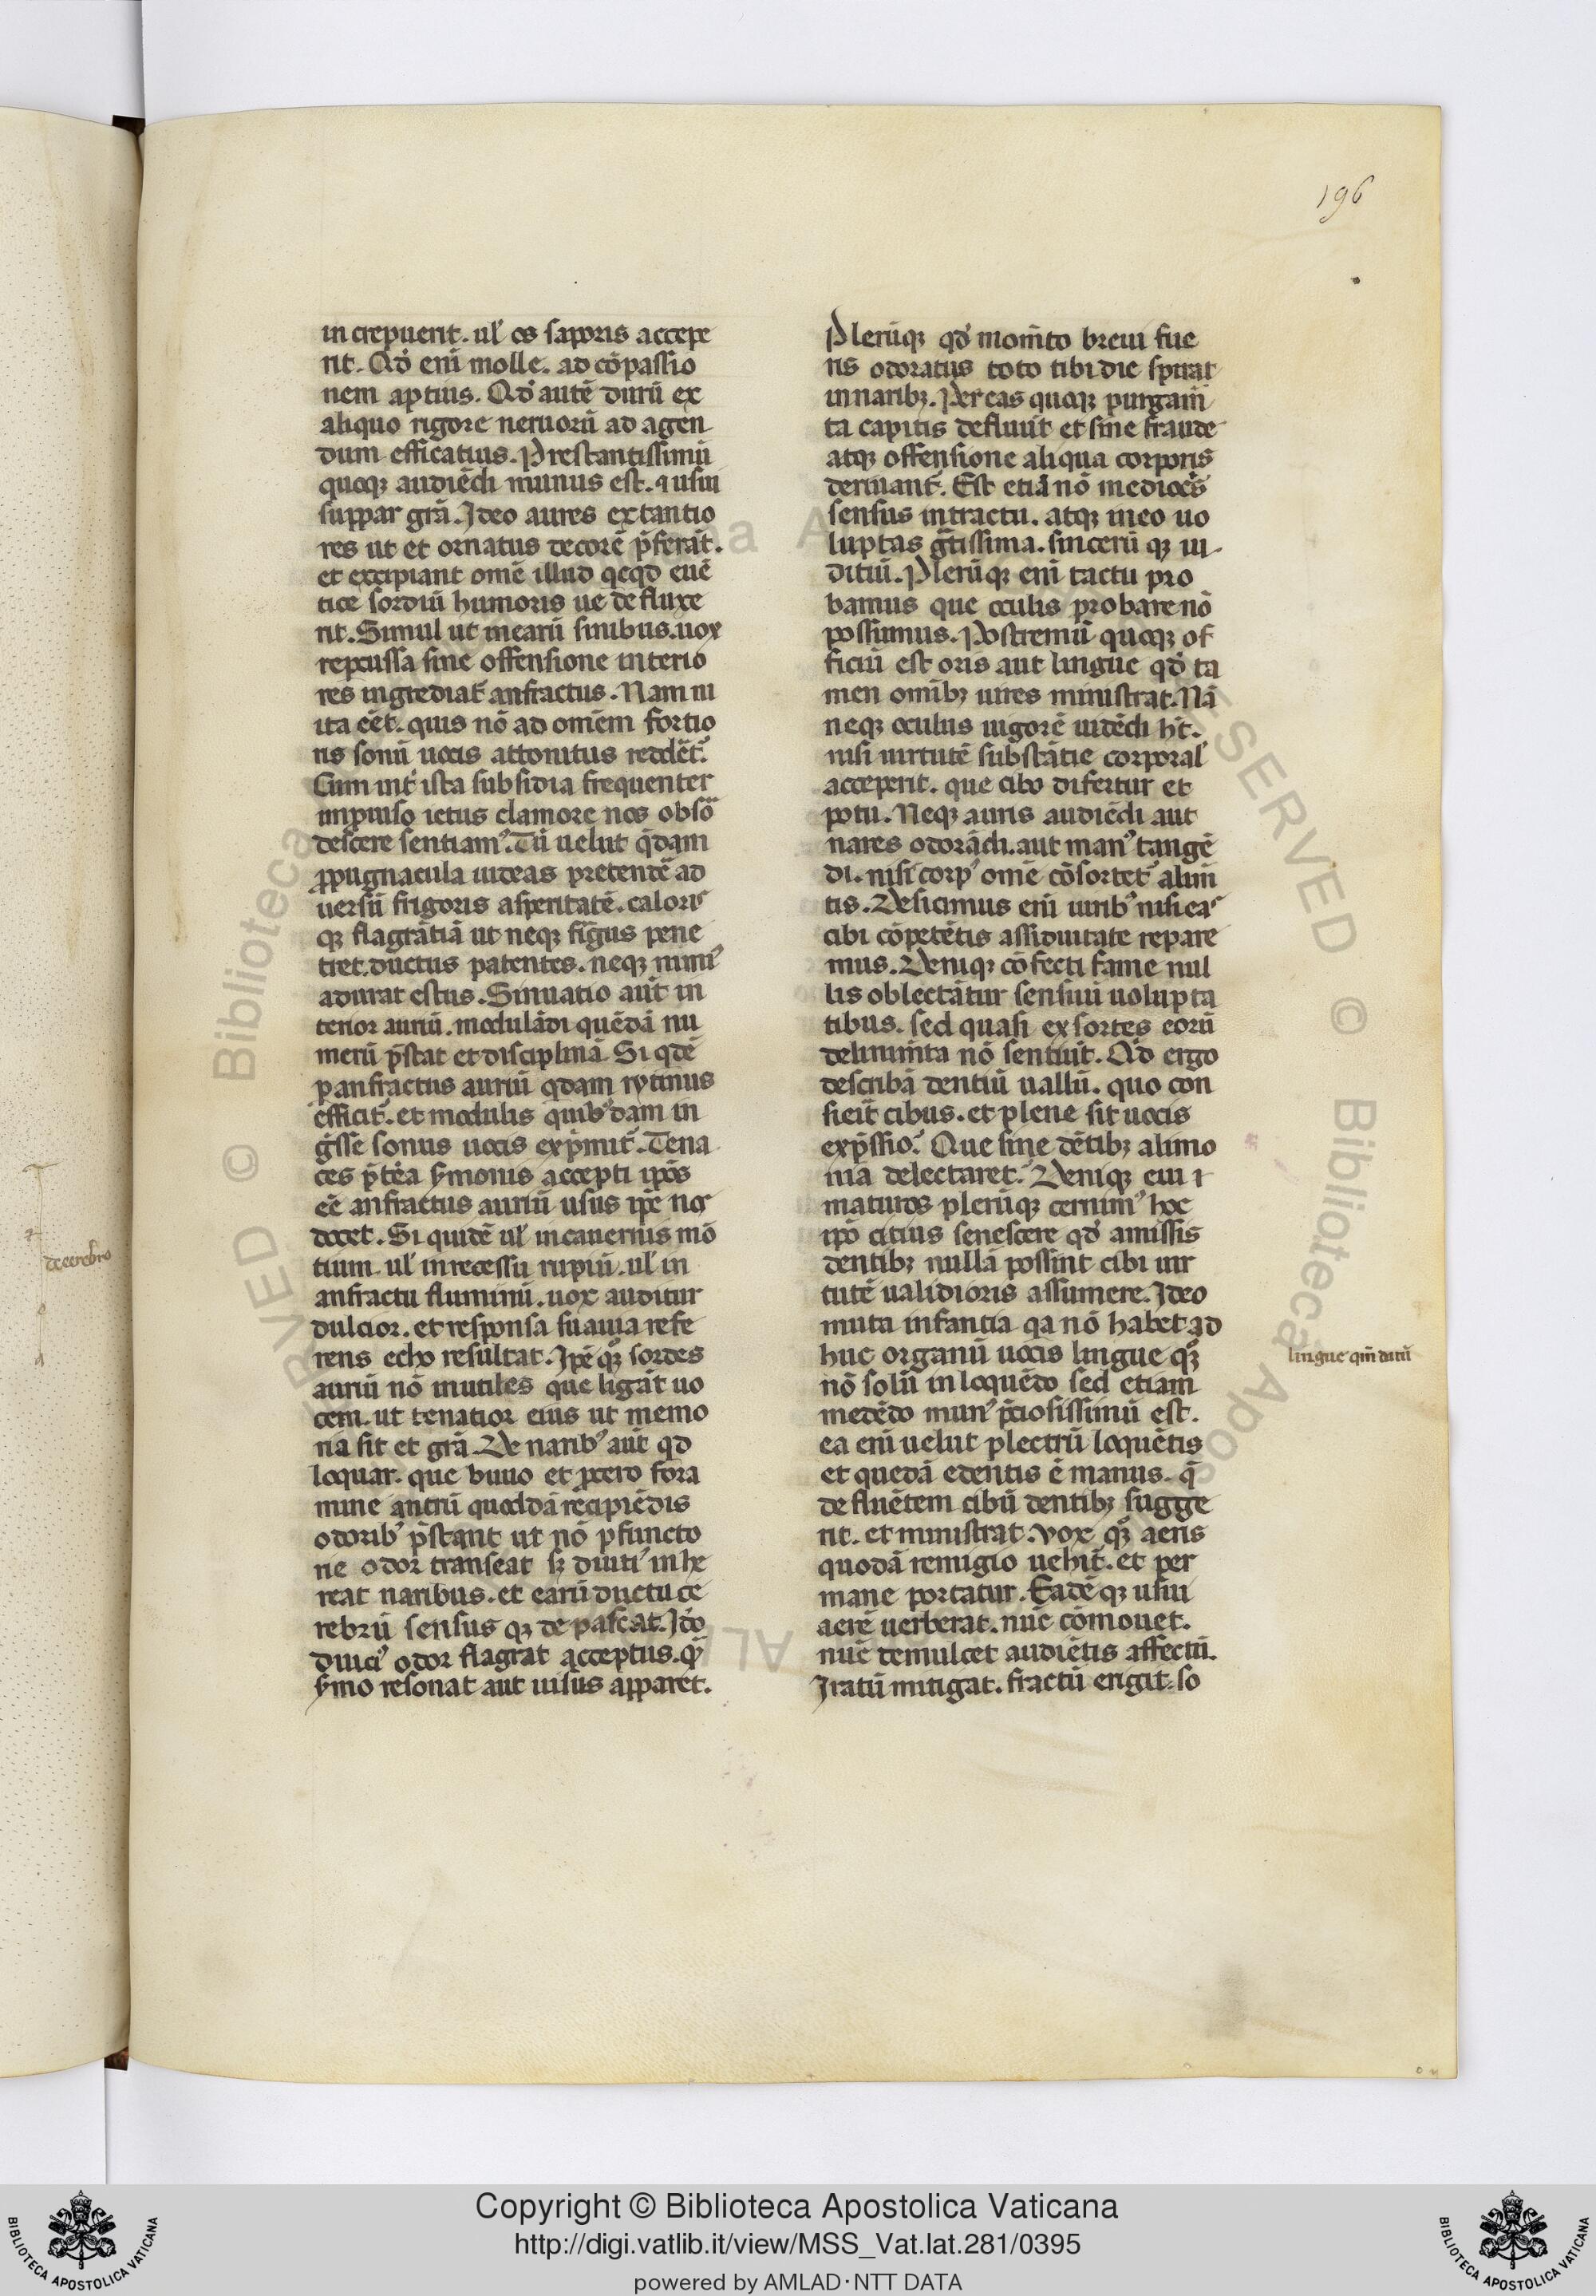 196
in crepuerit. ul' os saporis accepe
rit. Qd' eni molle. ad cōpassio
nem aptius. Qd' autē durū ex
aliquo rigore neruorū ad agen
dum efficatius. Prestantissimū
quoqꝫ audiēdi munus est. ⁊ usui
suppar grā. Ideo aures extantio
res ut et ornatus decorē p̄ferāt.
et excipiant omē illud qcqd euē
tice sordiū humoris ue defluxe
rit. Simul ut mearū sinibus. uox
repcussa sine offensione interio
res ingrediat᷑ anfractus. Nam ni
ita eēt. quis nō ad omēm fortio
ris sonū uocis attonitus reddēt᷑.
Cum int' ista subsidia frequenter
impuiso ictus clamore nos obsō
descere sentiamꝰ. Tū uelut qdam
ꝓpugnacula uideas pretendē ad
uersū frigoris asperitatē. caloris
qꝫ flagrātiā ut neqꝫ frigus pene
tret ductus patentes. neqꝫ nimiꝰ
adurat estus. Sinuatio aūt in
terior auriū. modulādi quēdā nu
merū p̄stat et disciplinā. Si qdē
p anfractus auriū qdam rytmus
efficit᷑. et modulis quibꝰdam in
gsse sonus uocis exp̄mit᷑. Tena
ces p̄tea s̄monis accepti ipōs
eē anfractus auriū usus ipē nos
docet. Si quidē ul' in cauernis mō
tium. ul' in recessu rupiū. ul' in
anfractu fluminū. uox auditur
dulcior. et responsa suauia refe
rens echo resultat. Ipē qꝫ sordes
auriū nō inutiles que ligāt uo
cem. ut tenatior eius ut memo
ria sit et grā. De naribꝰ aūt qd
loquar. que biuio et pcero fora
mine antrū quoddā recipiēdis
odoribꝰ p̄stant ut nō pfuncto
rie odor transeat sꝫ diutiꝰ inhe
reat naribus. et earū ductu ce
rebrū sensus qꝫ depascat. Ido
diuciꝰ odor flagrat acceptus. qꝫ
s̄mo resonat aut uisus apparet.
Plerūqꝫ qd' mom̄to breui fue
ris odoratus toto tibi die spirat
in naribꝫ. Per eas quoqꝫ purgam̄
ta capitis defluūt et sine fraude
atqꝫ offensione aliqua corporis
deriuant᷑. Est etiā nō mediocs̄
sensus in tractu. atqꝫ in eo uo
luptas gtissima. sincerū qꝫ iu
ditiū. Plerūqꝫ eni tactu pro
bamus que oculis probare nō
possumus. Postremū quoqꝫ of
ficiū est oris aut lingue qd' ta
men omībꝫ uires ministrat. Nā
neqꝫ oculus uigorē uidēdi ht.
nisi uirtutē substātie corporal'
acceperit. que cibo difertur et
potu. Neqꝫ auris audiēdi aut
nares odorādi. aut manꝰ tangē
di. nisi corpꝰ omē cōfortet᷑ alim̄
tis. Deficimus eni uiribꝰ nisi eas
cibi cōpetētis assiduitate repare
mus. Deniqꝫ cōfecti fame nul
lis oblectātur sensuū uolupta
tibus. sed quasi exsortes eorū
delinim̄ta nō sentiūt. Qd ergo
describā dentiū uallū. quo con
ficit᷑ cibus. et plene sit uocis
exp̄ssio. Que sine dētibꝫ alimo
nia delectaret᷑. Deniqꝫ eui i
maturos plerūqꝫ cernimꝰ hoc
ipō citius senescere qd' amissis
dentibꝫ nullā possint cibi uir
tutē ualidioris assumere. Ideo
muta infantia qa nō habet ad
huc organū uocis lingue qꝫ
nō solū in loquēdo sed etiam
in edēdo munꝰ p̄ciosissimū est.
ea eni uelut plectrū loquētis
et quedā edentis ē manus. q̄
defluētem cibū dentibꝫ sugge
rit. et ministrat. Vox qꝫ aeris
quodā remigio uehit᷑. et per
inane portatur. Eadē qꝫ usui
aerē uerberat. nūc cōmouet.
nūc demulcet audiētis affectū.
Iratū mitigat. fractū erigit. so
de cerebro
lingue qm̄ ditū
Copyright © Biblioteca Apostolica Vaticana
http://digi.vatlib.it/view/MSS_Vat.lat.281/0395
powered by AMLAD·NTT DATA
BIBLIOTECA APOSTOLICA VATICANA
BIBLIOTECA APOSTOLICA VATICANA